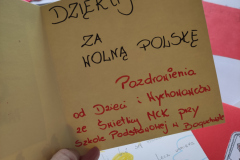 DZIĘKUJĘ
ZA
WOLNĄ POLSKĘ
Pozdrowienia
od Dzieci i Wychowanków
ze Świetlicy MCK przy
Szkole Podstawowej w